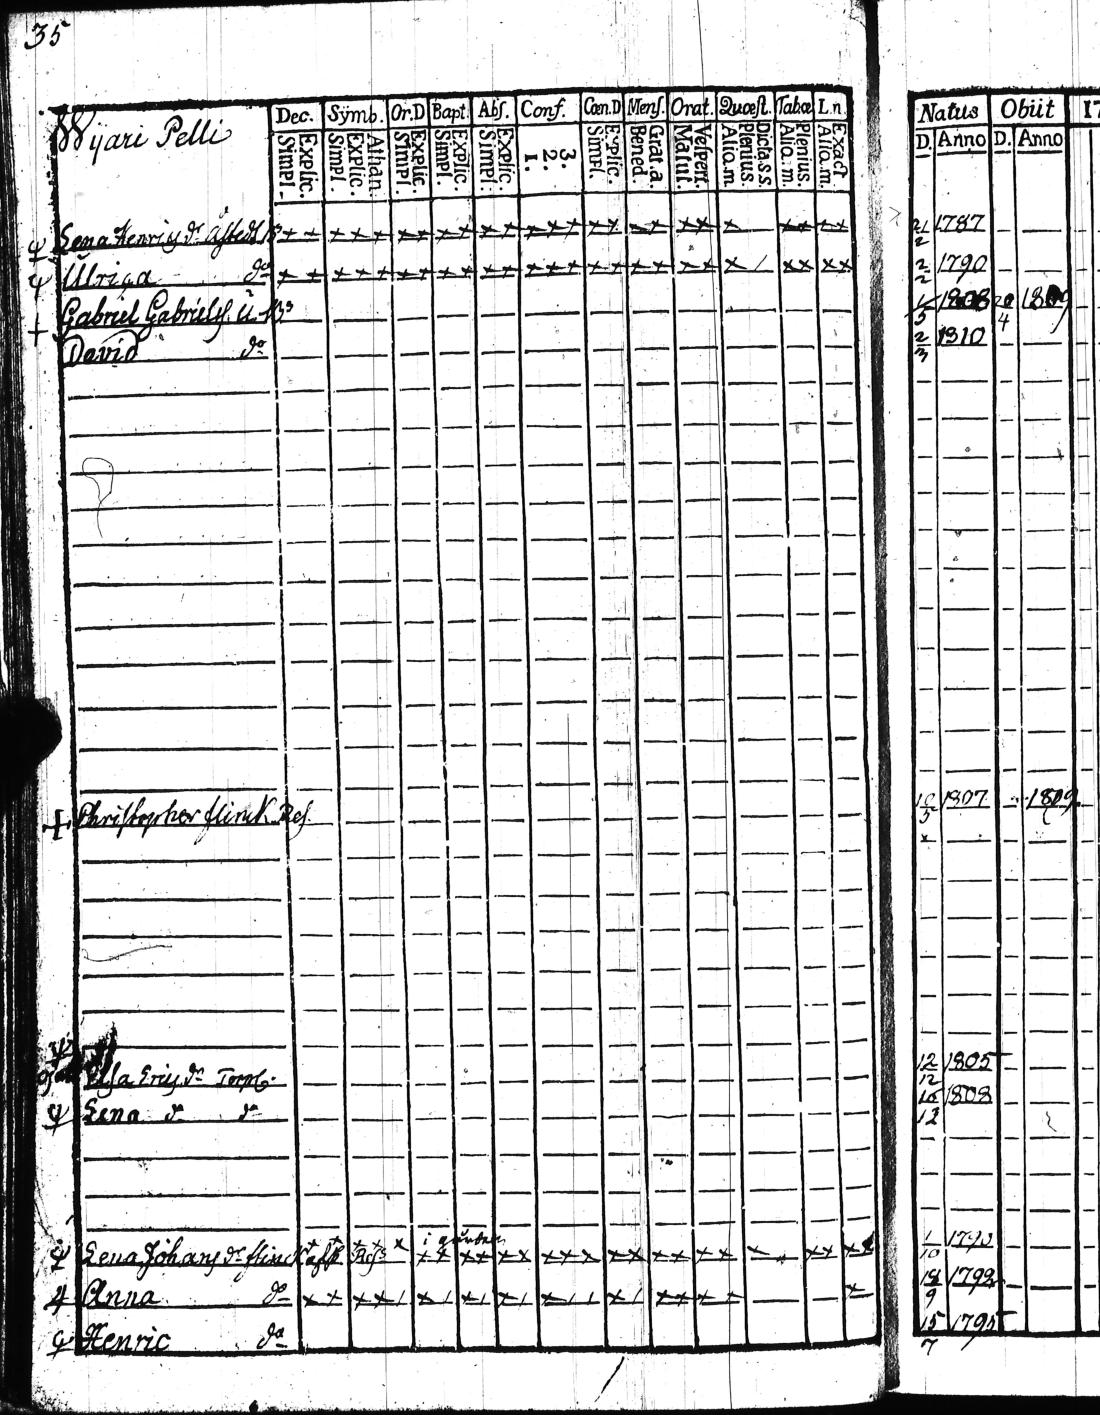 35
Wijari Pelli
Dec. Sÿmb. Or.D Bapt. Abſ. Conf. Cœn.D Menſ. Orat. Quœſt. Tabœ L.n.
Simpl. Explic. Simpl. Explic. Athan. Simpl. Explic. Simpl. Explic. Simpl. Explic. 1. 2. 3. Simpl. Explic. Bened. Grat.a. Matut. Veſpert. Alio.m Plenius. Dicta.s.s. Alio.m. Plenius. Alio.m. Exact
Natus Obiit 17
D. Anno D. Anno
Lena Henrics dr 21/2 1787
Ulrica do 2/2 1790
Gabriel Gabriels. 1808 20/4 1809
David do 2/3 1810
Christopher flinck 1807 1809
Elsa Erics dr Torp. 12/12 1805
Lena dr do 16/12 1808
i gården
Lena Johans dr flinck 1/10
Anna do 18/9 1792
Henric do 15/7 1795